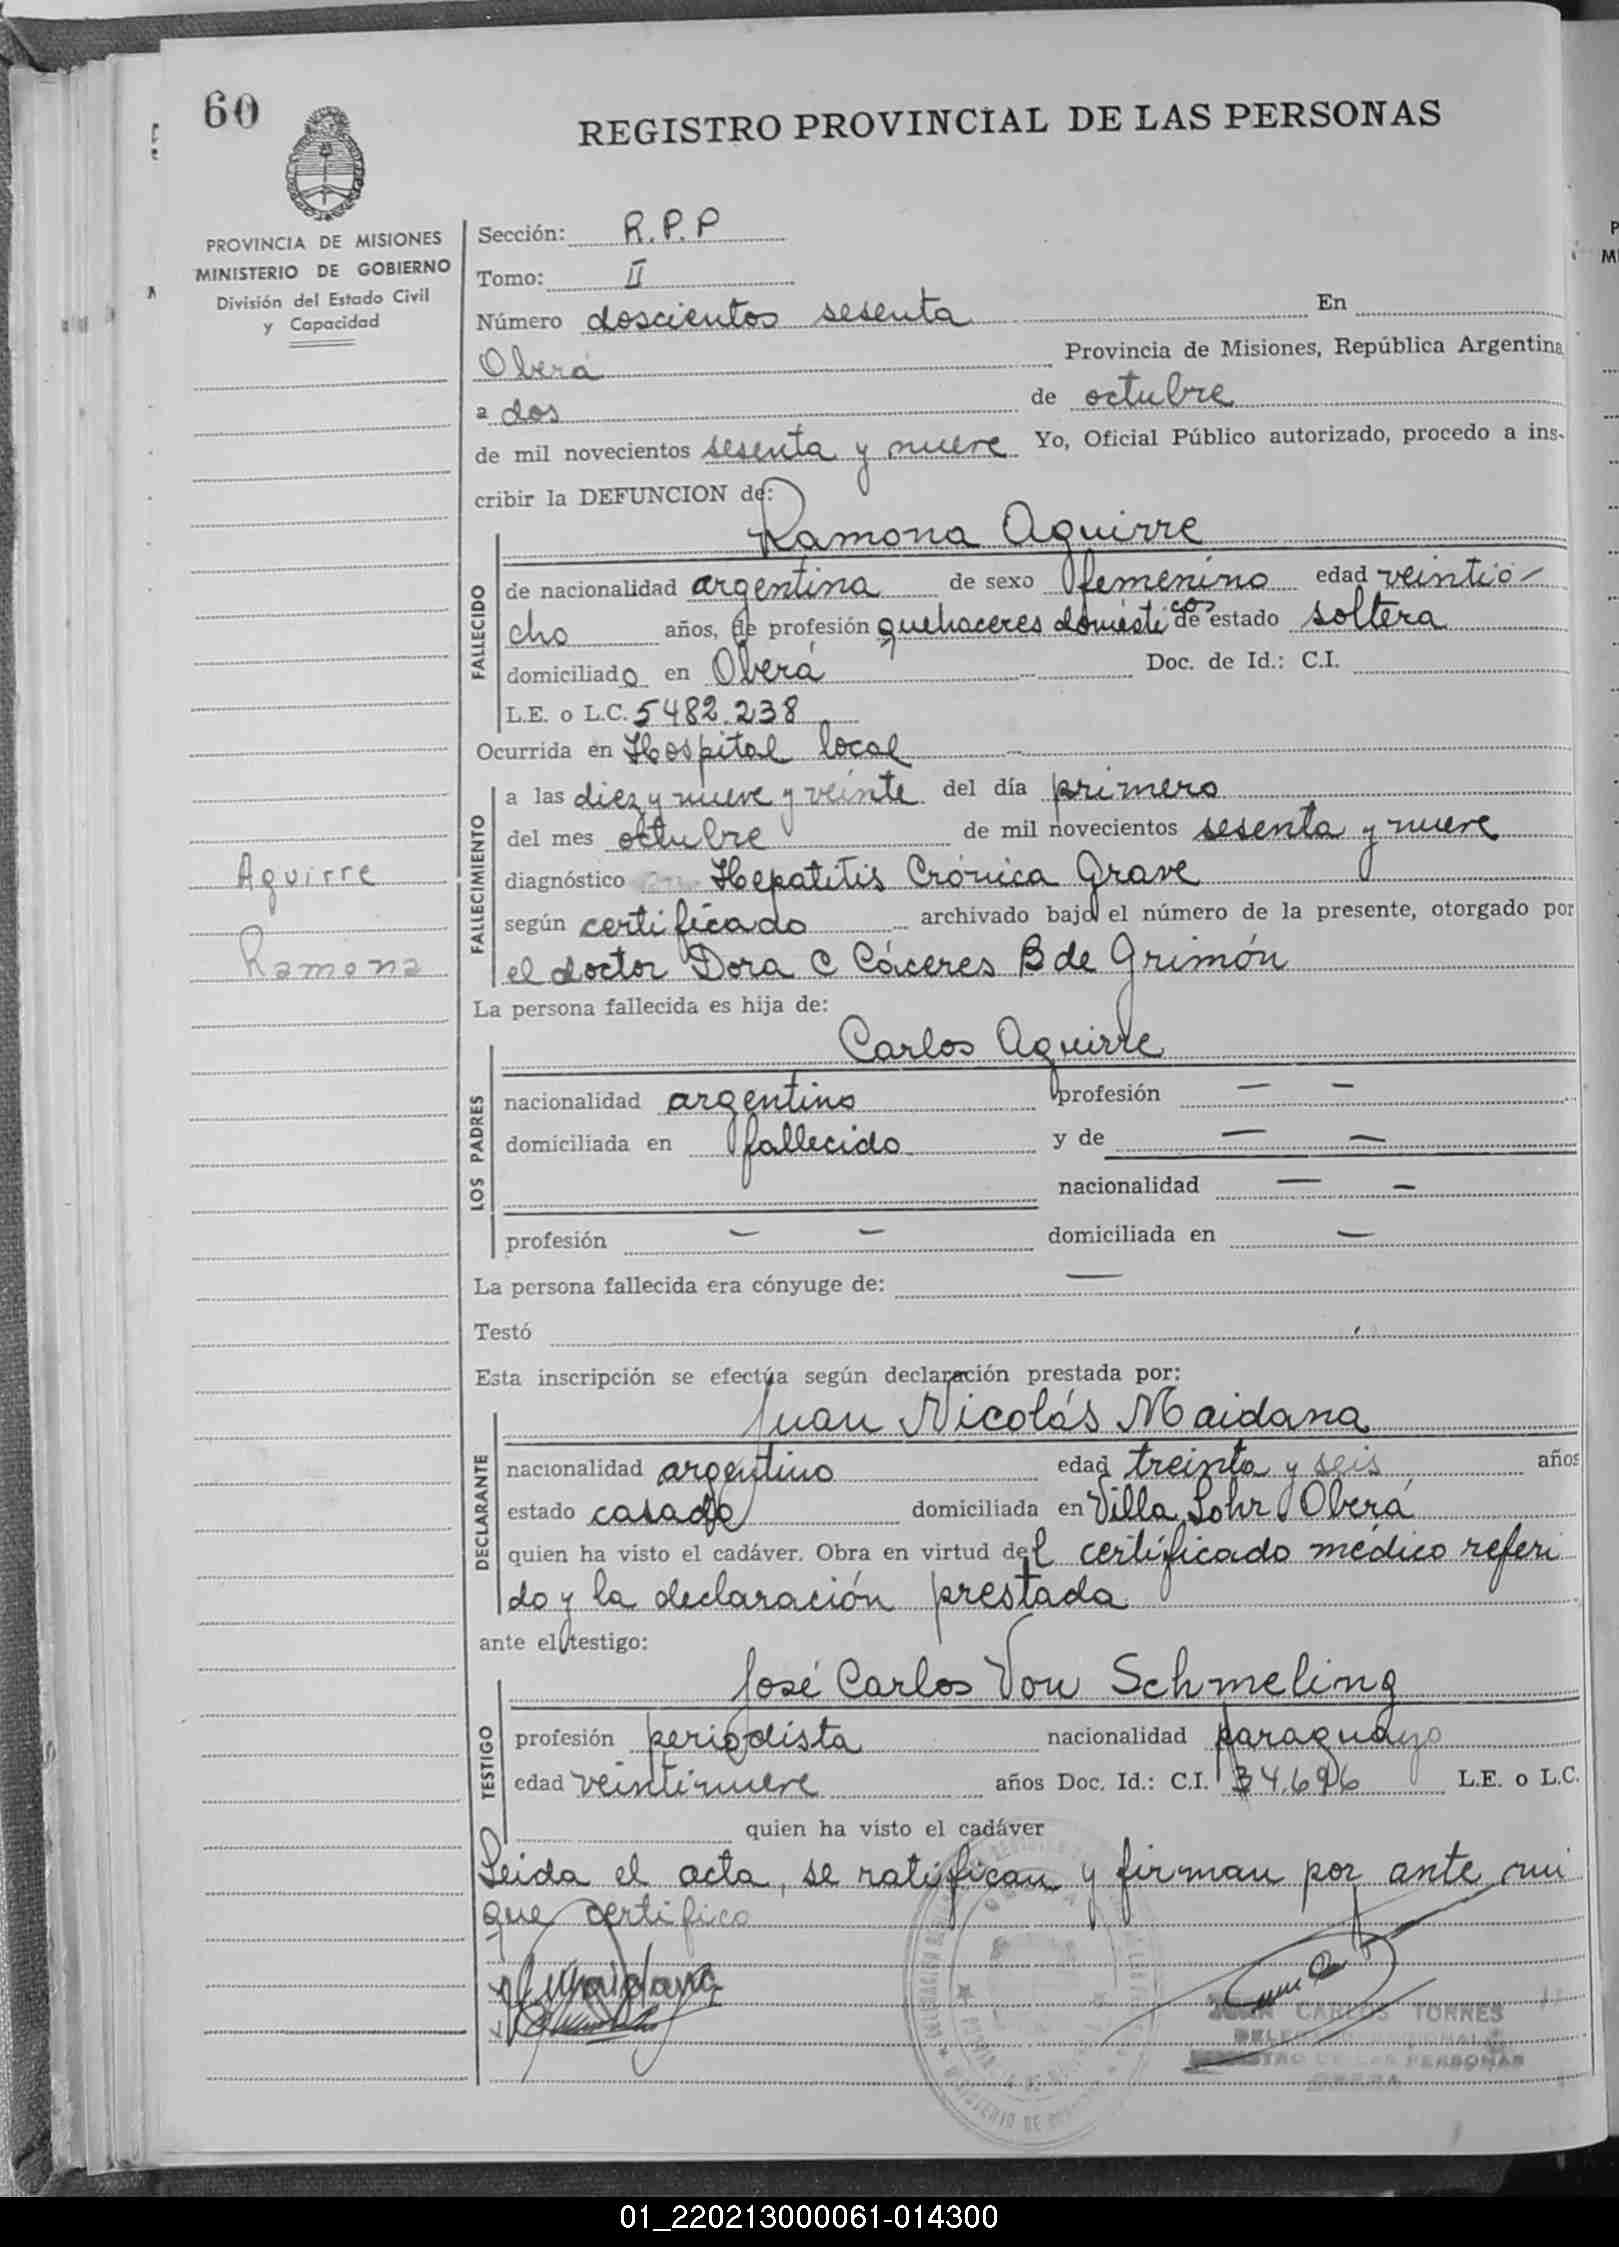 60
REGISTRO PROVINCIAL DE LAS PERSONAS
PROVINCIA DE MISIONES
MINISTERIO DE GOBIERNO
División del Estado Civil
y Capacidad
Sección: R.P.P
Tomo: II
Número doscientos sesenta En
Oberá Provincia de Misiones, República Argentina
a dos de octubre
de mil novecientos sesenta y nueve Yo, Oficial Público autorizado, procedo a ins-
cribir la DEFUNCION de:
Ramona Aguirre
FALLECIDO
de nacionalidad argentina de sexo femenino edad veintio-
cho años, de profesión quehaceres domésticos de estado soltera
domiciliado en Oberá Doc. de Id.: C.I.
L.E. o L.C. 5482.238
Ocurrida en Hospital local
FALLECIMIENTO
a las diez y nueve y veinte del día primero
del mes octubre de mil novecientos sesenta y nueve
diagnóstico Hepatitis Crónica Grave
según certificado archivado bajo el número de la presente, otorgado por
el doctor Dora C Cáceres B de Grimón
Aguirre
Ramona
La persona fallecida es hija de:
Carlos Aguirre
LOS PADRES
nacionalidad argentino profesión — —
domiciliada en fallecido y de — —
nacionalidad — —
profesión — — domiciliada en —
La persona fallecida era cónyuge de: —
Testó
Esta inscripción se efectúa según declaración prestada por:
Juan Nicolás Maidana
DECLARANTE
nacionalidad argentino edad treinta y seis años
estado casado domiciliada en Villa Lohr Oberá
quien ha visto el cadáver. Obra en virtud del certificado médico referi
do y la declaración prestada
ante el testigo:
José Carlos Von Schmeling
TESTIGO
profesión periodista nacionalidad paraguayo
edad veintinueve años Doc. Id.: C.I. 34.696 L.E. o L.C.
quien ha visto el cadáver
Leida el acta, se ratifican y firman por ante mi
que certifico
Maidana
JUAN CARLOS TORRES
REGISTRO DE LAS PERSONAS
OBERA
01_220213000061-014300